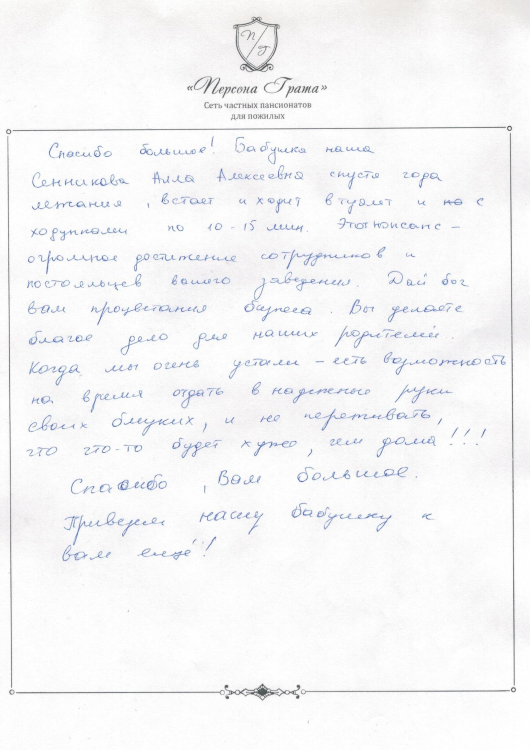 П/Г
«Персона Грата»
Сеть частных пансионатов
для пожилых
Спасибо большое! Бабушка наша
Сенникова Алла Алексеевна спустя года
лежания, встает и ходит в туалет и с
ходунками по 10-15 мин. Этот нюисанс –
огромное достижение сотрудников и
постояльцев вашего заведения. Дай бог
вам процветания бизнеса. Вы делаете
благое дело для наших родителей.
Когда мы очень устали – есть возможность
на время отдать в надежные руки
своих близких, и не переживать,
что что-то будет хуже, чем дома!!!
Спасибо, Вам большое.
Привезем нашу бабушку к
вам ещё!